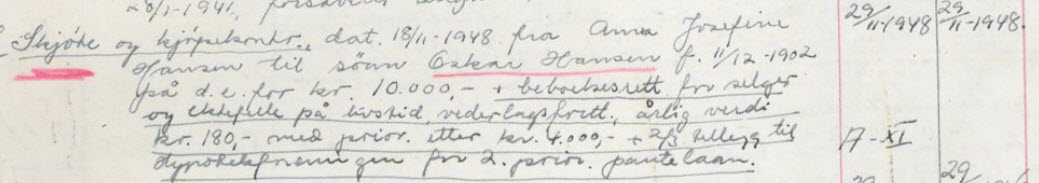 28/1-1941,
Skjöte og kjöpekontr., dat. 18/11-1948 fra Anna Josefine 29/11-1948 29/11-1948.
Hansen til sönn Oskar Hansen f. 11/12-1902
på d.e. for kr. 10.000,- + beboelsesrett for selger
og ektefelle på livstid, vederlagsfritt, årlig verdi
kr. 180,- med prior. etter kr. 4.000,- + 2/3 tillegg til 17-XI
Hypotekforeningen for 2. prior. pantelaan.
29